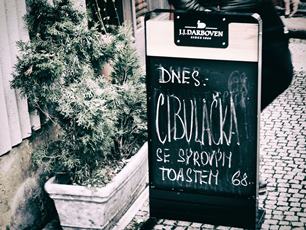 J.J.DARBOVEN
SINCE 1866
DNES:
CIBULAČKA
SE SÝROVÝM
TOASTEM 68.